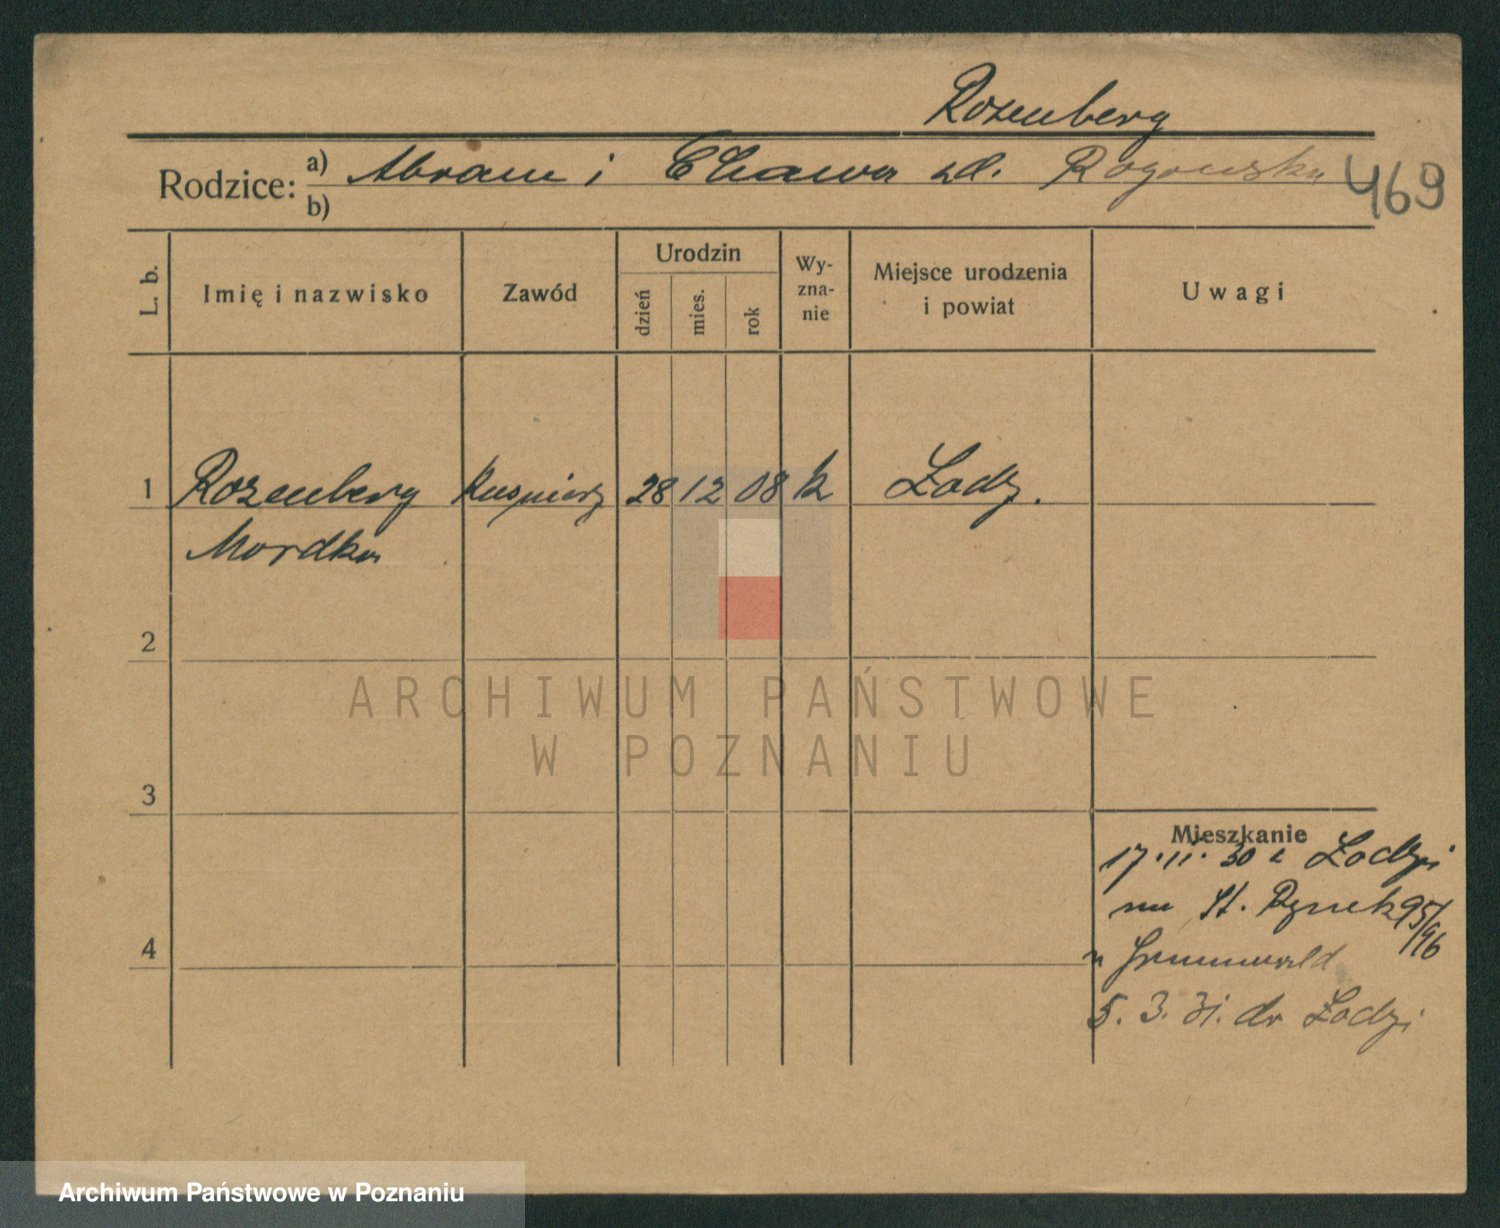 Rozenberg
Rodzice: a) Abram i Chawa zd. Rogowska
b)
469
L. b. Imię i nazwisko Zawód Urodzin dzień mies. rok Wyznanie Miejsce urodzenia i powiat Uwagi
1 Rozenberg kuśnierz 28 12 08 Łodz.
Mordka
2
ARCHIWUM PAŃSTWOWE
W POZNANIU
3
Mieszkanie
17.11.30 z Łodzi
na St. Rynek 95/96
u Grunwald
4
5. 3. 31. do Łodzi
Archiwum Państwowe w Poznaniu